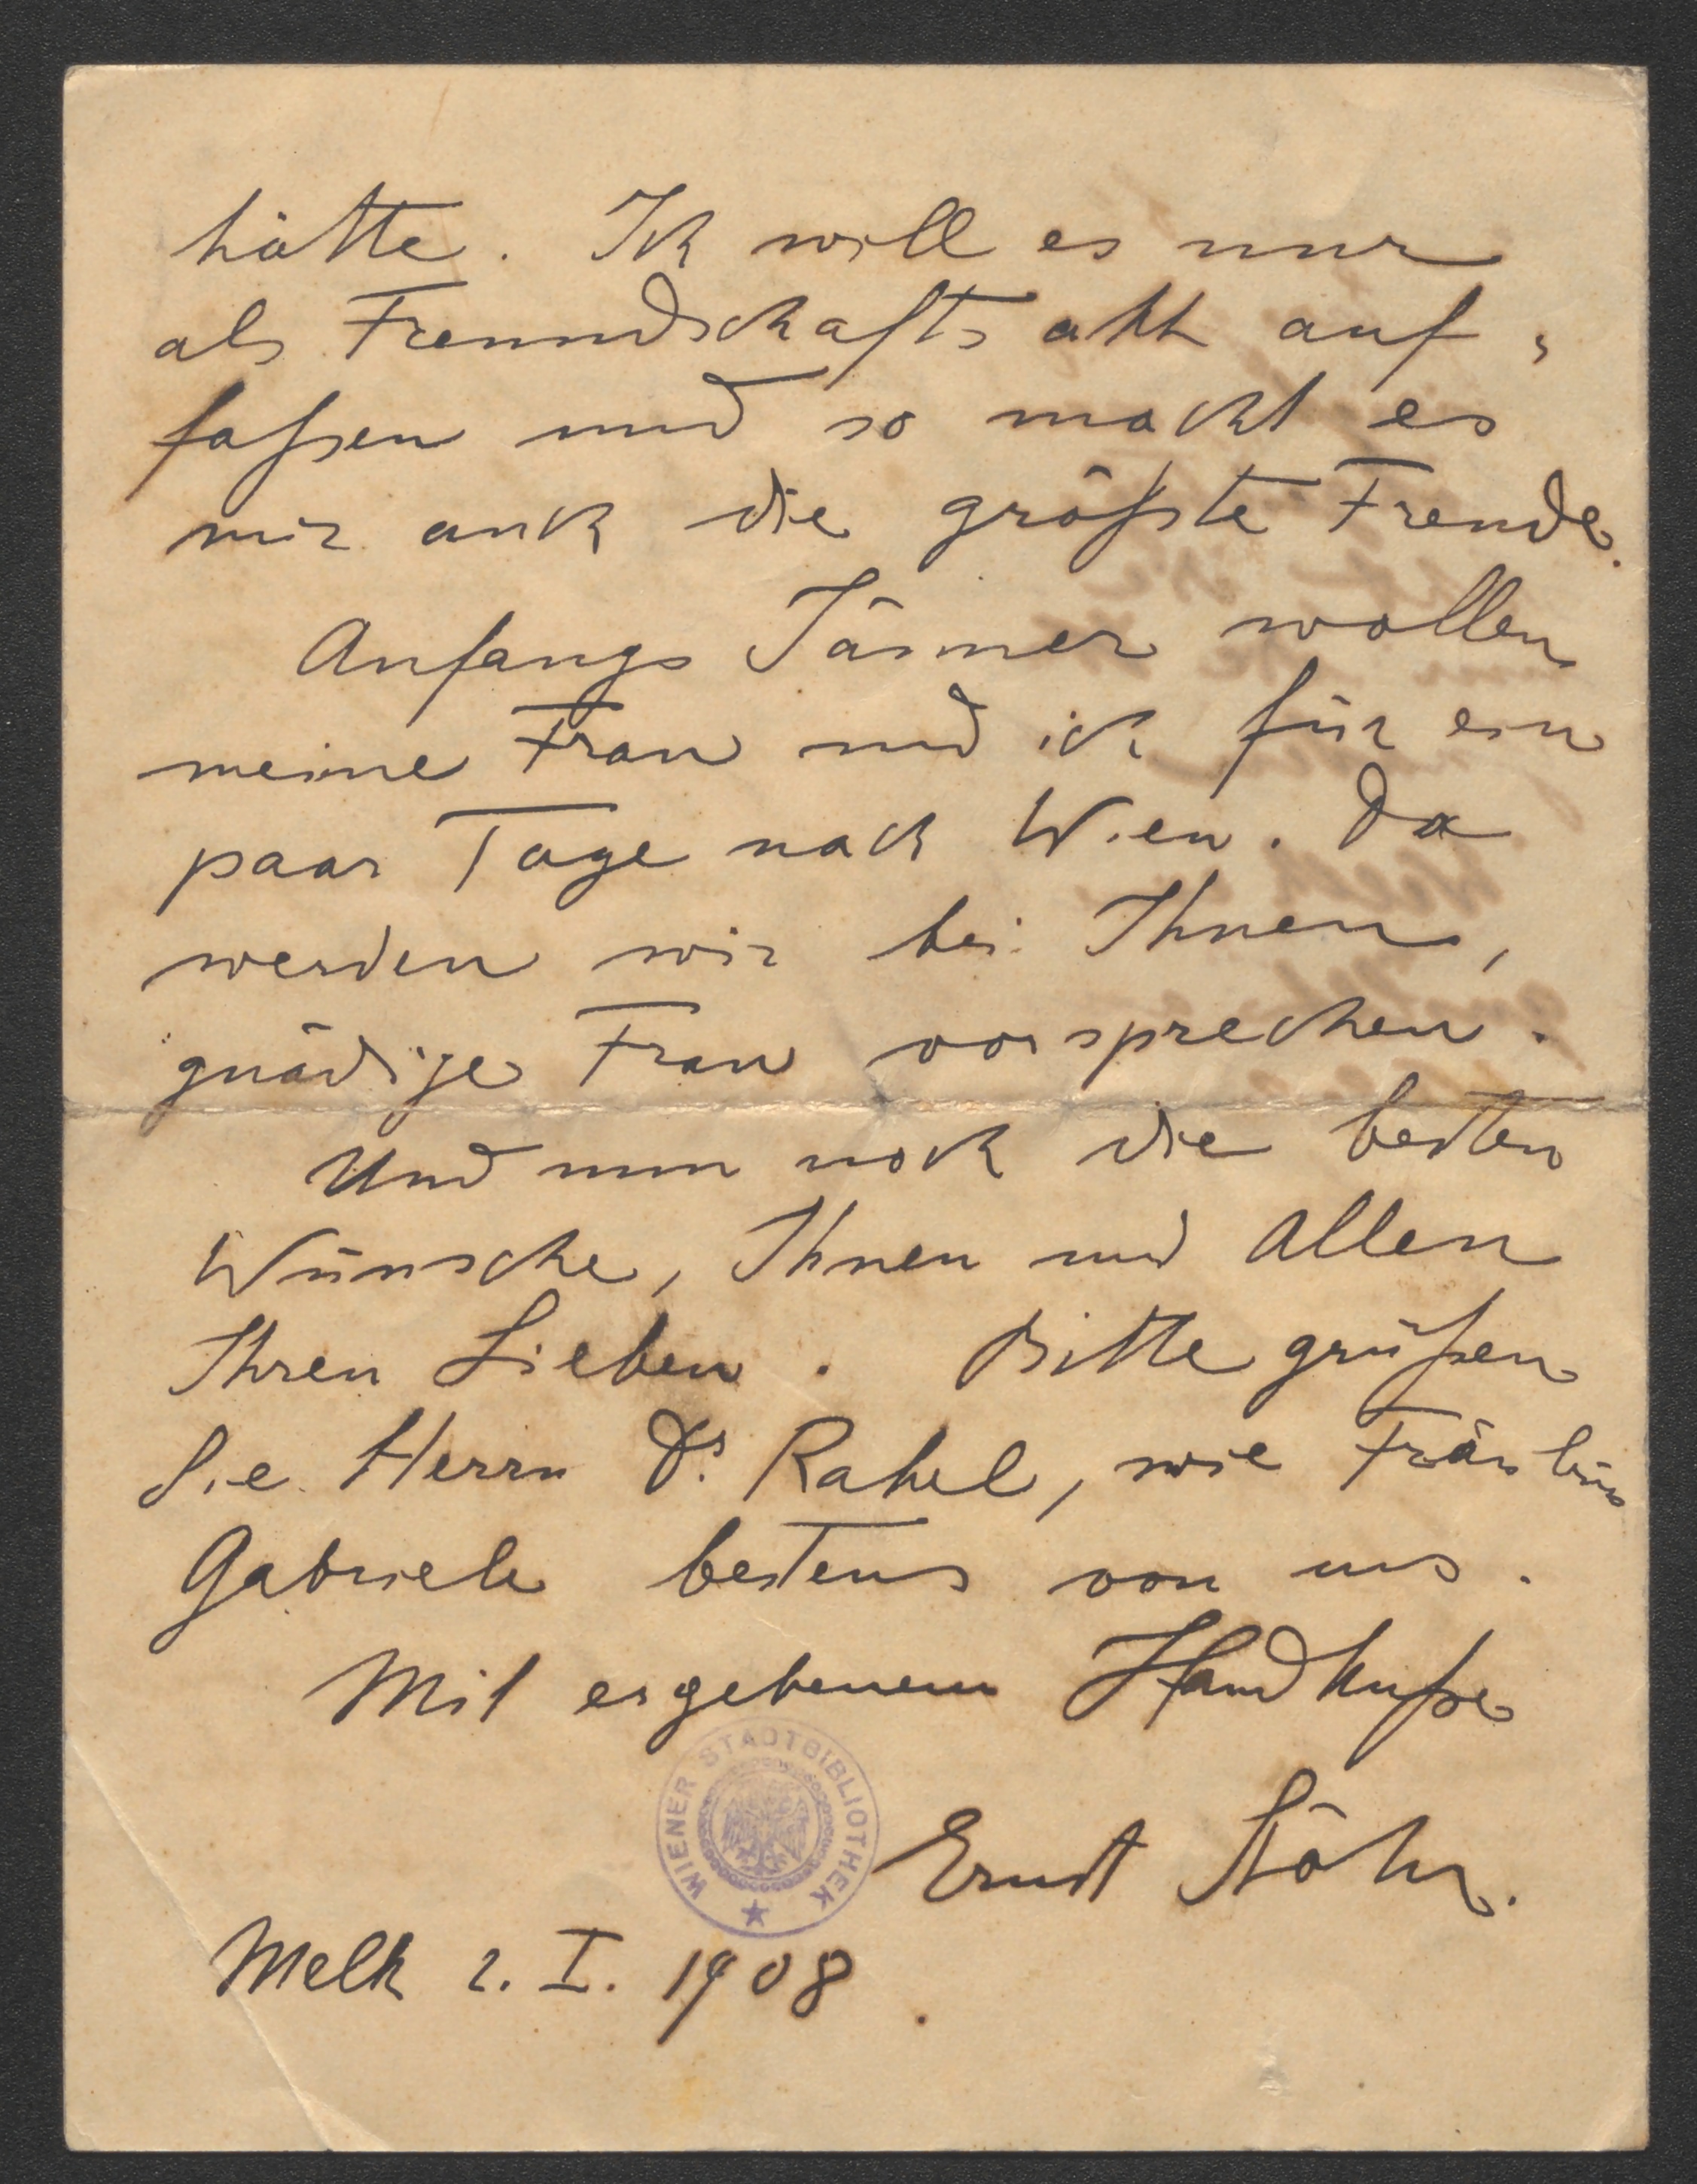 hätte. Ich will es nur
als Freundschaftsakt auf=
faßen und so macht es
mir auch die größte Freude.
Anfangs Jänner wollen
meine Frau und ich für ein
paar Tage nach Wien. Da
werden wir bei Ihnen,
gnädige Frau vorsprechen.
Und nun noch die besten
Wünsche, Ihnen und Allen
Ihren Lieben. Bitte grüßen
Sie Herrn Dr. Rahel, wie Fräulein
Gabriele bestens von uns.
Mit ergebenem Handkuße
WIENER STADTBIBLIOTHEK
Ernst Stöhr.
Melk 2. I. 1908.